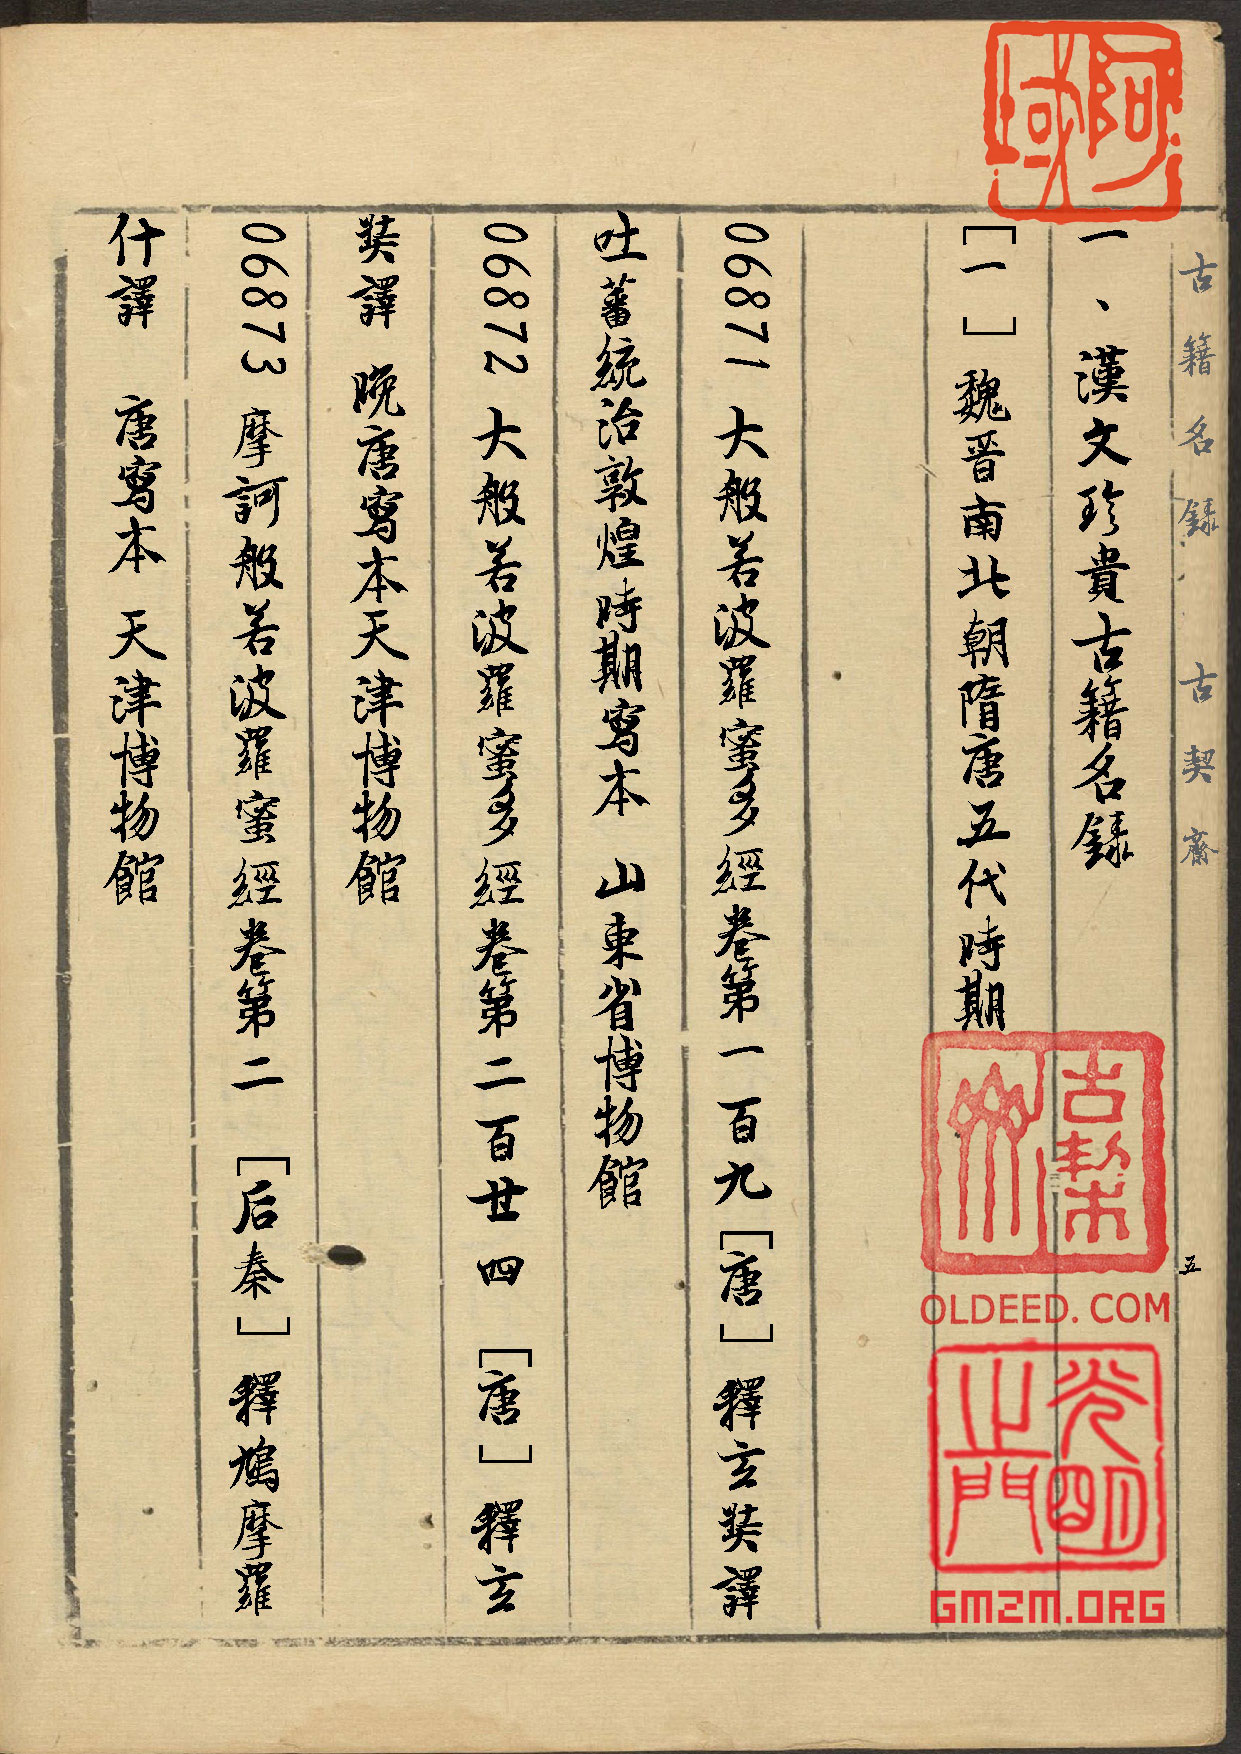 古籍名錄 古契齋 五
一、漢文珍貴古籍名錄
[一]魏晋南北朝隋唐五代時期
06871 大般若波羅蜜多經卷第一百九[唐]釋玄奘譯
吐蕃統治敦煌時期寫本 山東省博物館
06872 大般若波羅蜜多經卷第二百廿四 [唐]釋玄
奘譯 晚唐寫本天津博物館
06873 摩訶般若波羅蜜經卷第二 [后秦]釋鳩摩羅
什譯 唐寫本 天津博物館
阿域
古契齋
OLDEED.COM
光明之門
GMZM.ORG